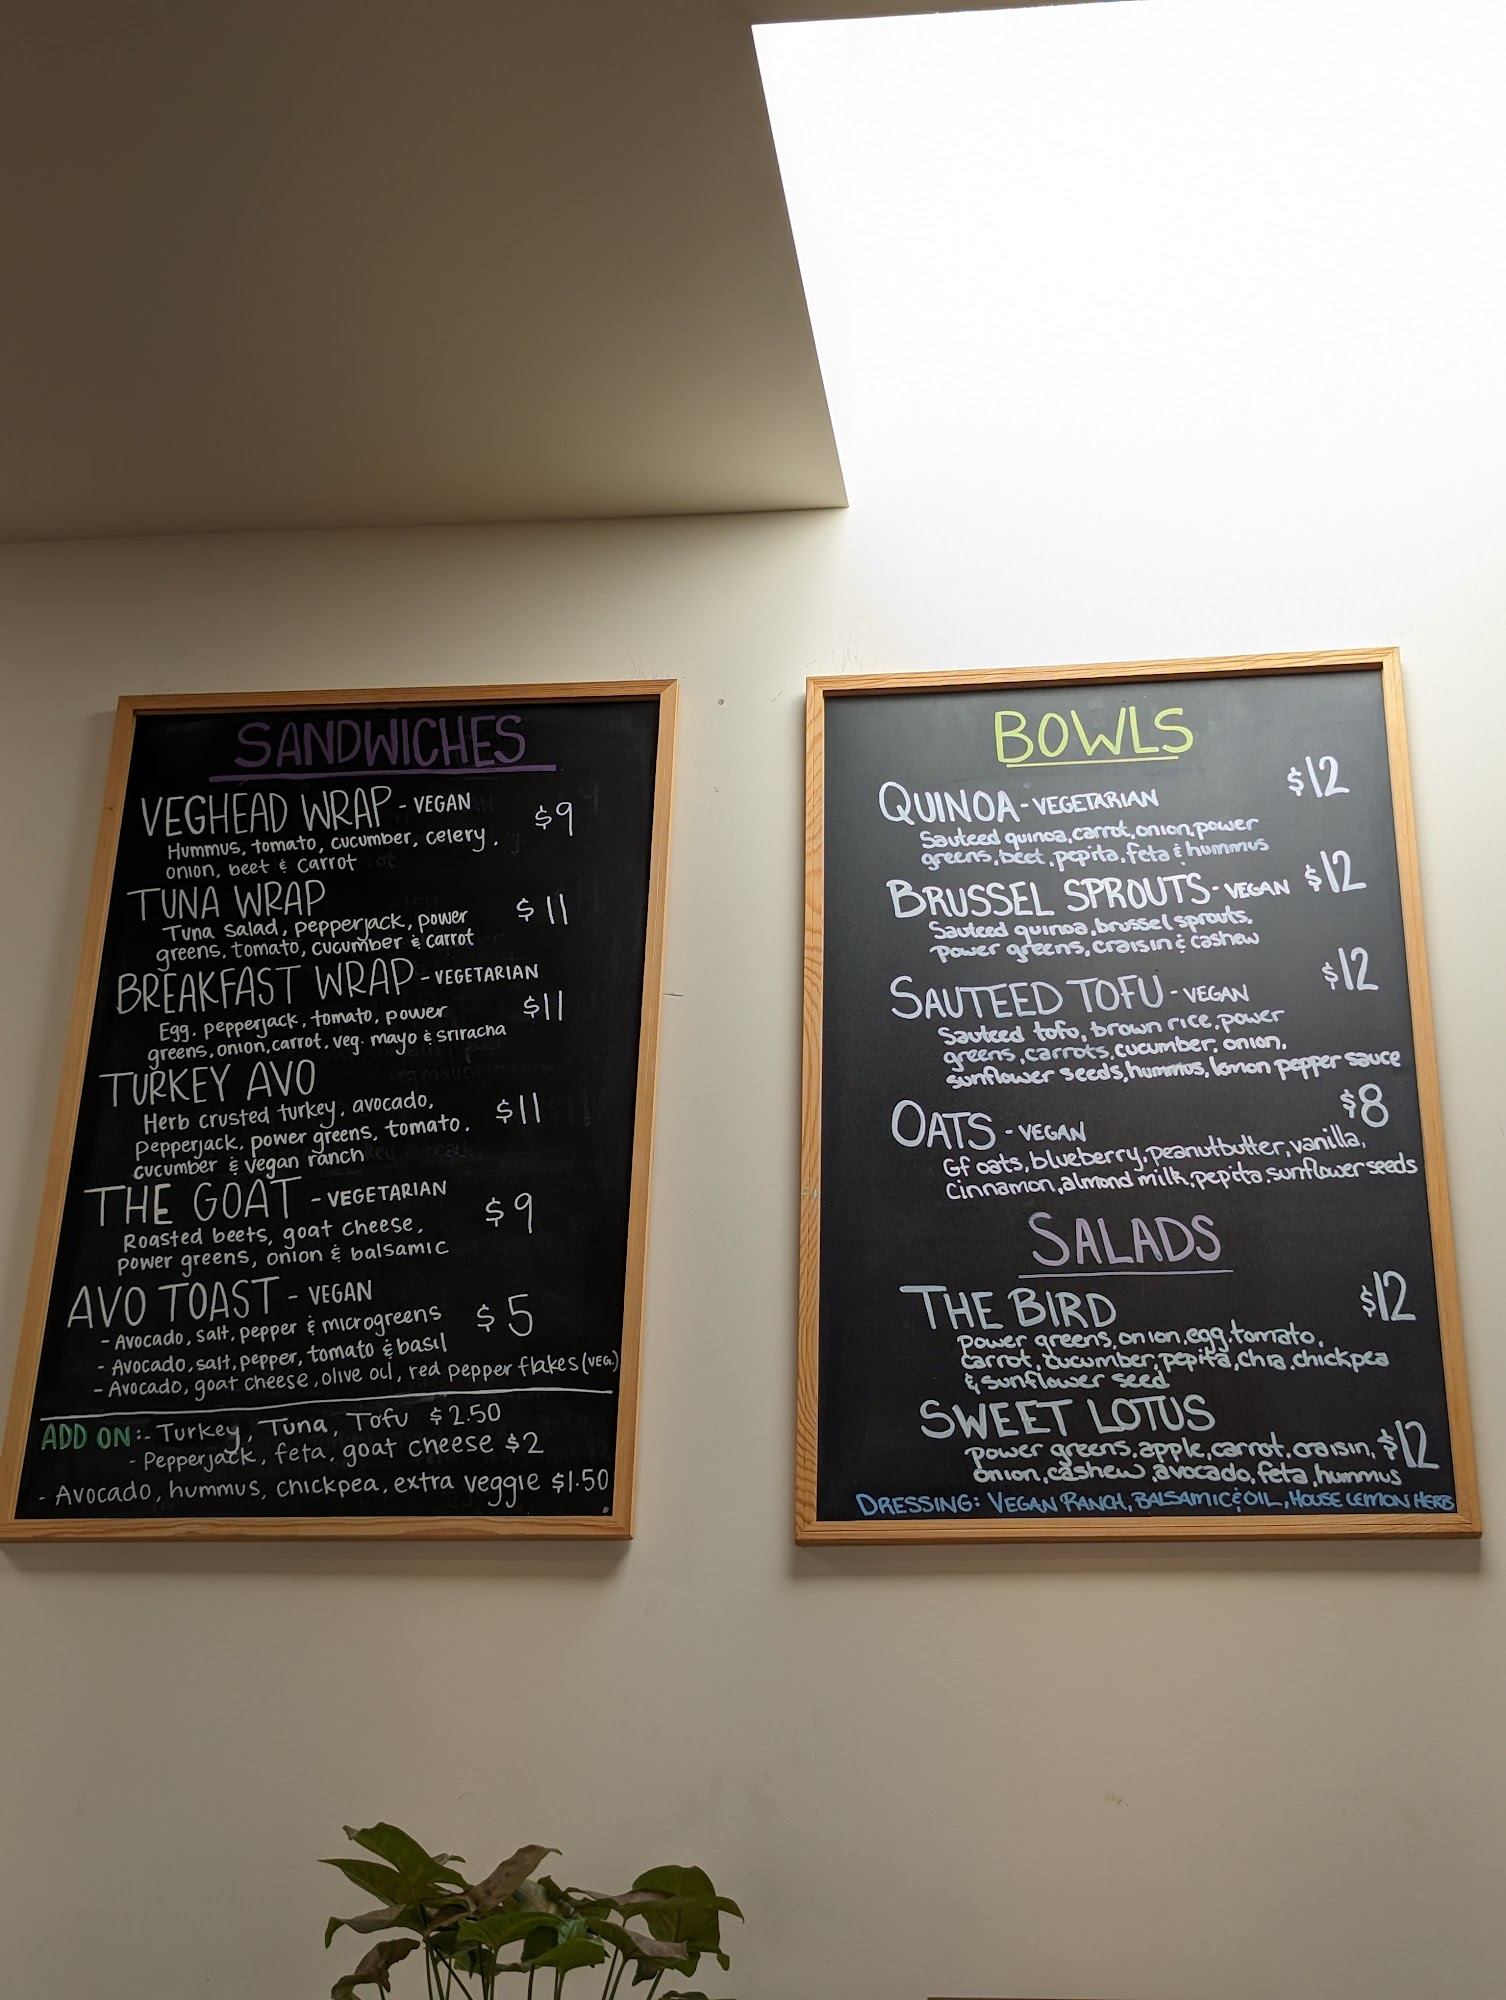 SANDWICHES
VEGHEAD WRAP - VEGAN
$9
Hummus, tomato, cucumber, celery,
onion, beet & carrot
TUNA WRAP
$11
Tuna salad, pepperjack, power
greens, tomato, cucumber & carrot
BREAKFAST WRAP - VEGETARIAN
$11
Egg, pepperjack, tomato, power
greens, onion, carrot, veg. mayo & sriracha
TURKEY AVO
Herb crusted turkey, avocado,
$11
Pepperjack, power greens, tomato,
cucumber & vegan ranch
THE GOAT - VEGETARIAN
$9
Roasted beets, goat cheese,
power greens, onion & balsamic
AVO TOAST - VEGAN
$5
- Avocado, salt, pepper & microgreens
- Avocado, salt, pepper, tomato & basil
- Avocado, goat cheese, olive oil, red pepper flakes (VEG.)
ADD ON:- Turkey, Tuna, Tofu $2.50
- Pepperjack, feta, goat cheese $2
- Avocado, hummus, chickpea, extra veggie $1.50
BOWLS
QUINOA - VEGETARIAN
$12
Sauteed quinoa, carrot, onion, power
greens, beet, pepita, feta & hummus
BRUSSEL SPROUTS - VEGAN $12
Sauteed quinoa, brussel sprouts,
power greens, craisin & cashew
SAUTEED TOFU - VEGAN
$12
Sauteed tofu, brown rice, power
greens, carrots, cucumber, onion,
sunflower seeds, hummus, lemon pepper sauce
OATS - VEGAN
$8
Gf oats, blueberry, peanutbutter, vanilla,
Cinnamon, almond milk, pepita, sunflower seeds
SALADS
THE BIRD
$12
power greens, onion, egg, tomato,
carrot, cucumber, pepita, chia, chickpea
& sunflower seed
SWEET LOTUS
power greens, apple, carrot, craisin, $12
onion, cashew, avocado, feta, hummus
DRESSING: VEGAN RANCH, BALSAMIC & OIL, HOUSE LEMON HERB